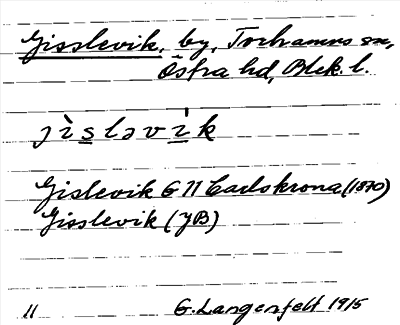 Gisslevik, by, Torhamns sn,
Östra hd, Blek. l.
jìsləvík
Gislevik G 11 Carlskrona (1870)
Gisslevik (JB)
11 G. Langenfelt 1915